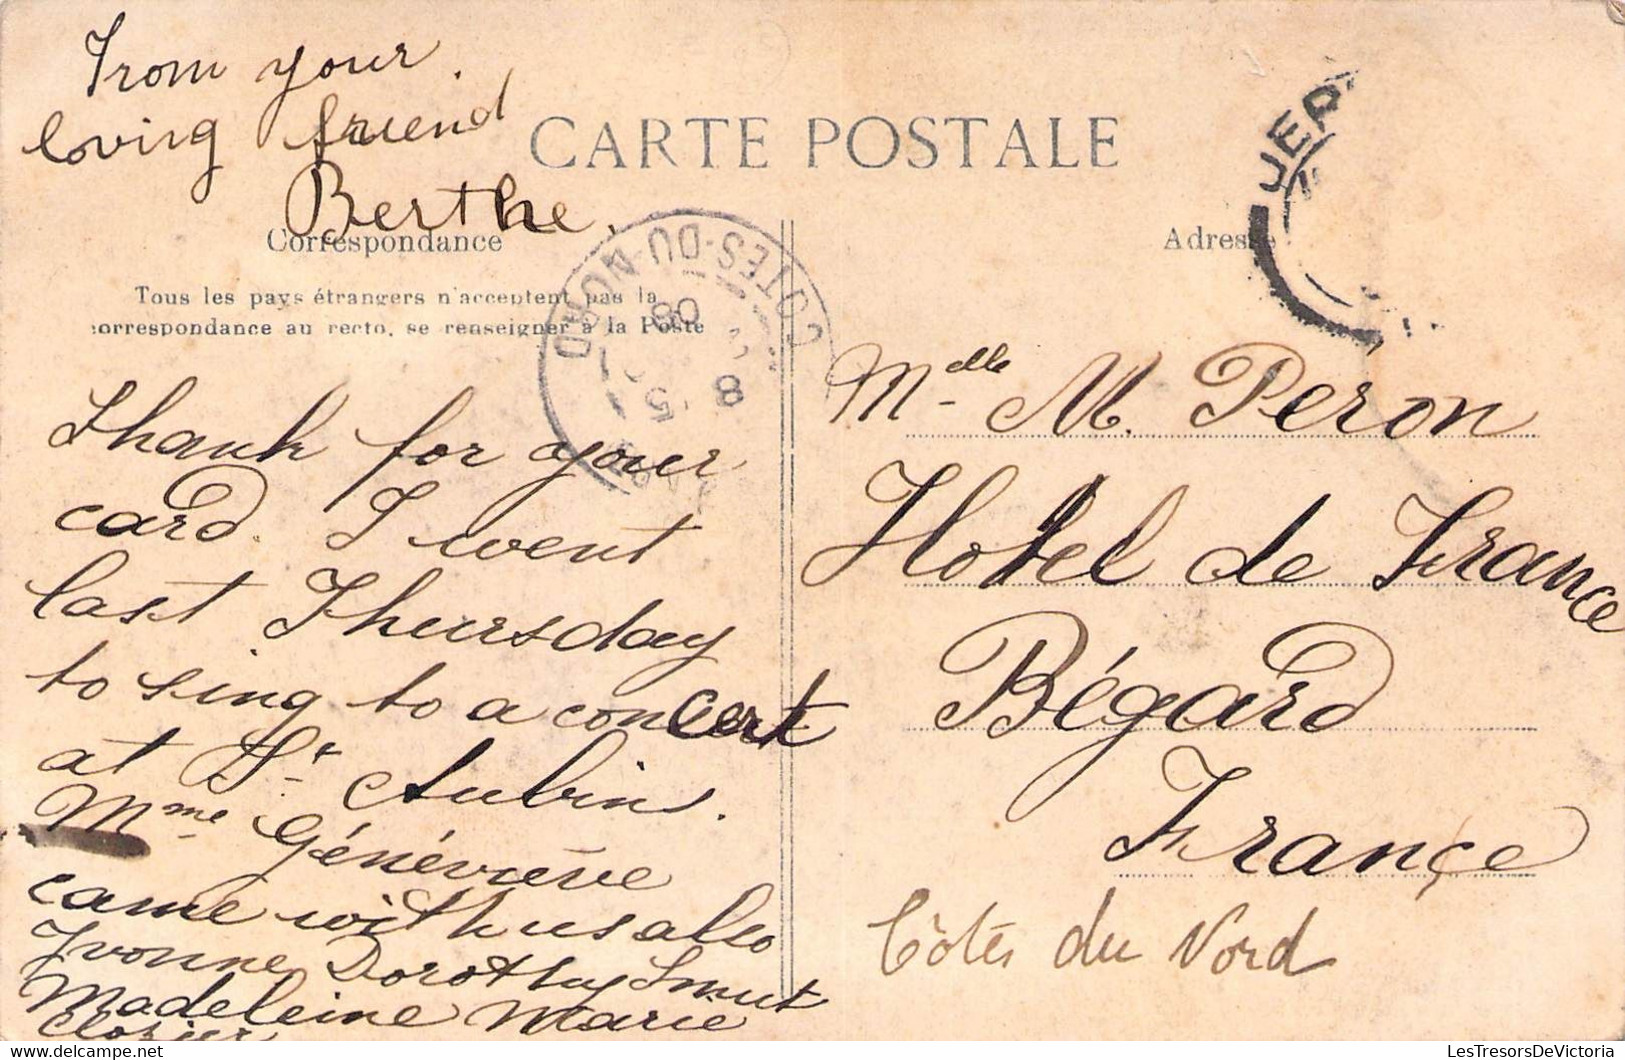 From your
loving friend
Berthe.
CARTE POSTALE
Correspondance
Tous les pays étrangers n'acceptent pas la
correspondance au recto, se renseigner à la Poste
Thank for your
card. I went
last Thursday
to sing to a concert
at St Aubins.
Mme Généviève
came with us also
Yvonne Dorothy
Madeleine Marie
COTES-DU-NORD
08
8
5
JER
Adresse
Melle M. Peron
Hotel de France
Bégard
Françe
Côtés du Nord
LesTresorsDeVictoria